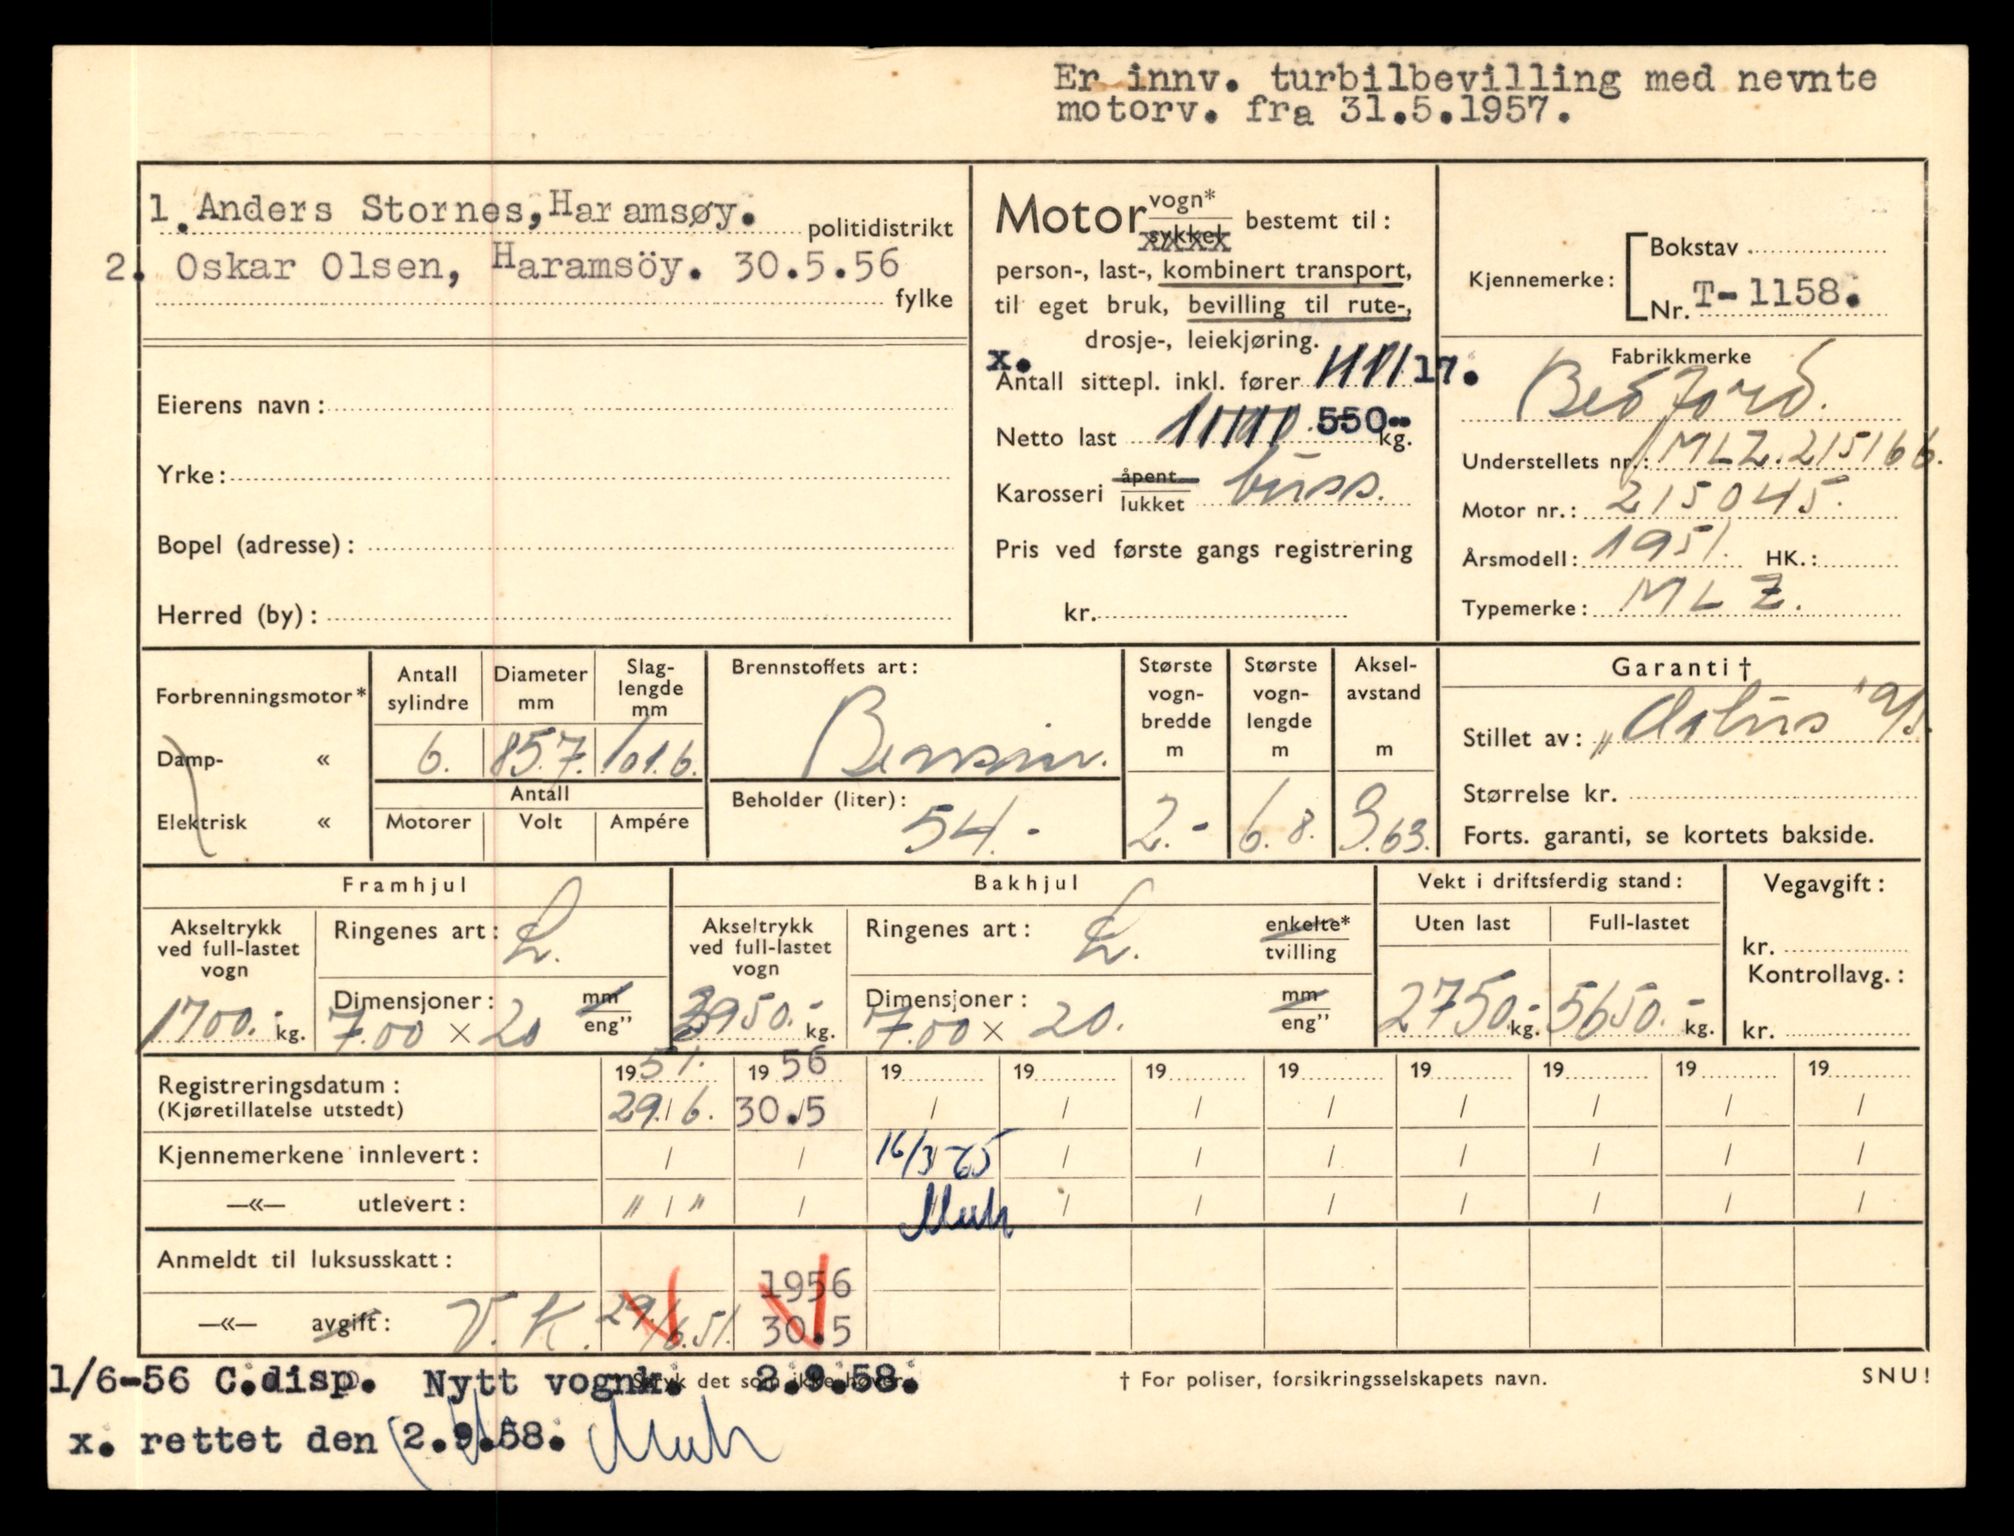 Er innv. turbilbevilling med nevnte
motorv. fra 31.5.1957.
1. Anders Stornes, Haramsøy.
politidistrikt
2. Oskar Olsen, Haramsöy. 30.5.56
fylke
Eierens navn:
Yrke:
Bopel (adresse):
Herred (by):
Motor vogn* sykkel bestemt til:
person-, last-, kombinert transport,
til eget bruk, bevilling til rute-,
drosje-, leiekjøring.
x.
Antall sittepl. inkl. fører 17.
Netto last 550-- kg.
Karosseri åpent lukket buss.
Pris ved første gangs registrering
kr.
Kjennemerke: Bokstav
Nr. T-1158.
Fabrikkmerke
Bedford.
Understellets nr.: MLZ.215166.
Motor nr.: 215045.
Årsmodell: 1951. HK.:
Typemerke: MLZ.
Forbrenningsmotor*
Damp- «
Elektrisk «
Antall sylindre
6.
Diameter mm
85.7.
Slag-lengde mm
101.6.
Antall
Motorer Volt Ampére
Brennstoffets art:
Bensin.
Beholder (liter):
54.-
Største vogn-bredde m
2.-
Største vogn-lengde m
6.8.
Aksel-avstand m
3.63.
Garanti †
Stillet av: A/S.
Størrelse kr.
Forts. garanti, se kortets bakside.
Framhjul
Akseltrykk ved full-lastet vogn
1700.- kg.
Ringenes art: L.
Dimensjoner: mm eng”
7.00 × 20
Bakhjul
Akseltrykk ved full-lastet vogn
3950.- kg.
Ringenes art: L. enkelte* tvilling
Dimensjoner: mm eng”
7.00 × 20.
Vekt i driftsferdig stand:
Uten last Full-lastet
2750.- kg. 5650.- kg.
Vegavgift:
kr.
Kontrollavg.:
kr.
Registreringsdatum: 1951. 1956 19 19 19 19 19 19 19 19
(Kjøretillatelse utstedt) 29./6. 30./5 / / / / / / / /
Kjennemerkene innlevert: / / 16/3 65 / / / / / / /
—«— utlevert: " / " / / / / / / / /
Anmeldt til luksusskatt: 1956
—«— avgift: V.K. 29/6.51. 30.5
1/6-56 C.disp. Nytt vognk. 2.9.58.
Stryk det som ikke høver.
† For poliser, forsikringsselskapets navn.
SNU!
x. rettet den 2.9.58.